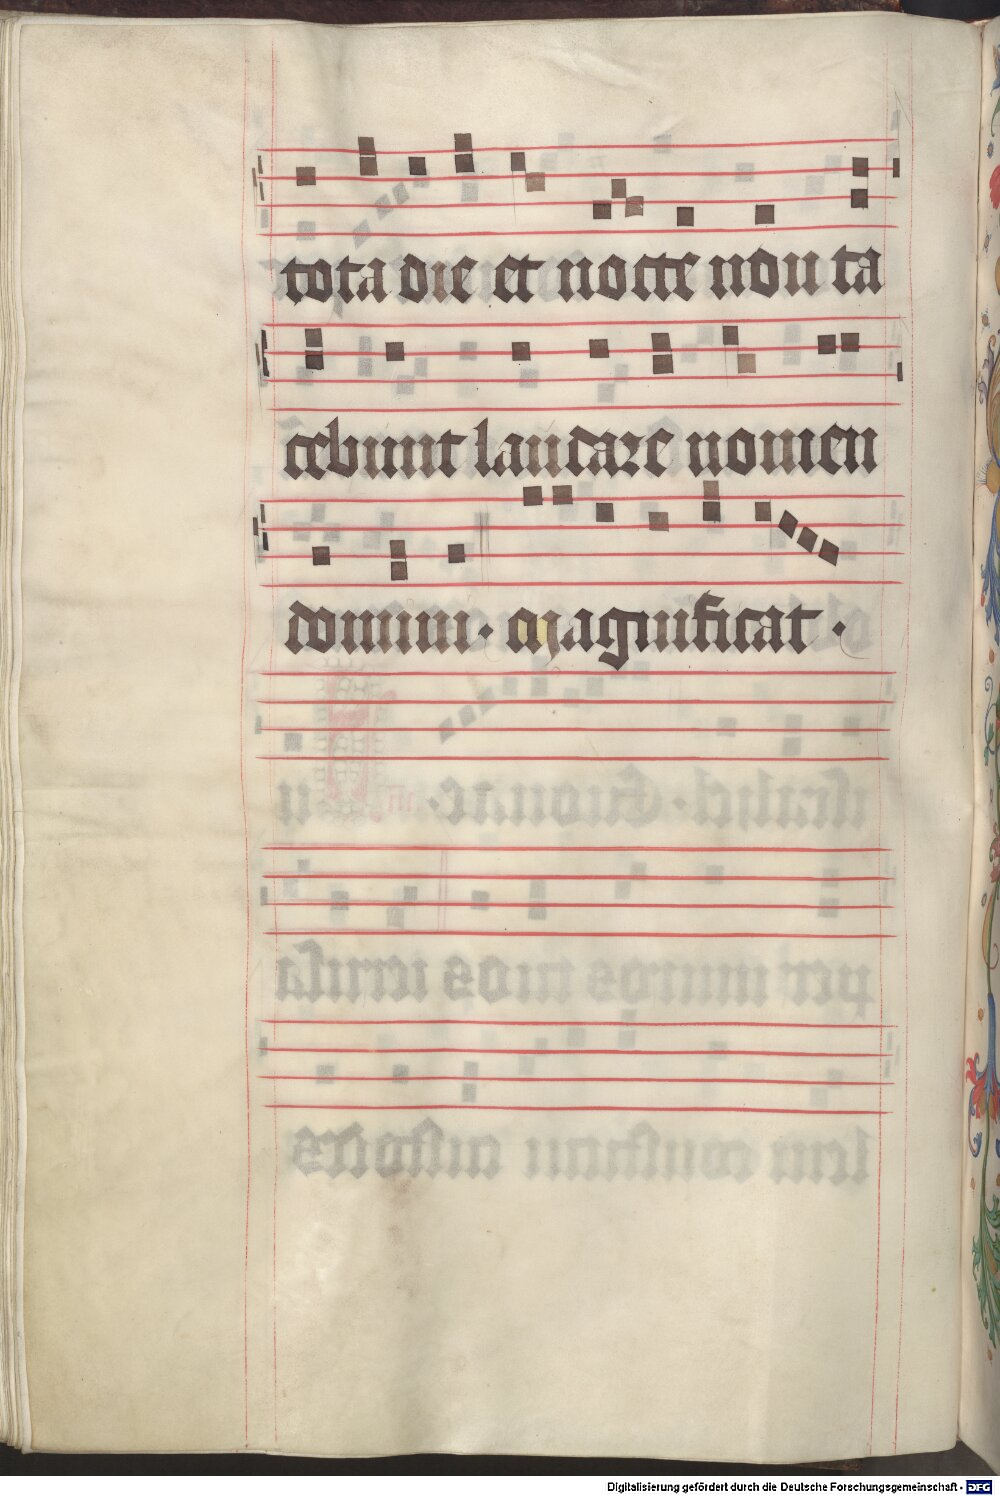 tota die et nocte non ta
cebunt laudare nomen
domini · Magnificat ·
Digitalisierung gefördert durch die Deutsche Forschungsgemeinschaft - DFG